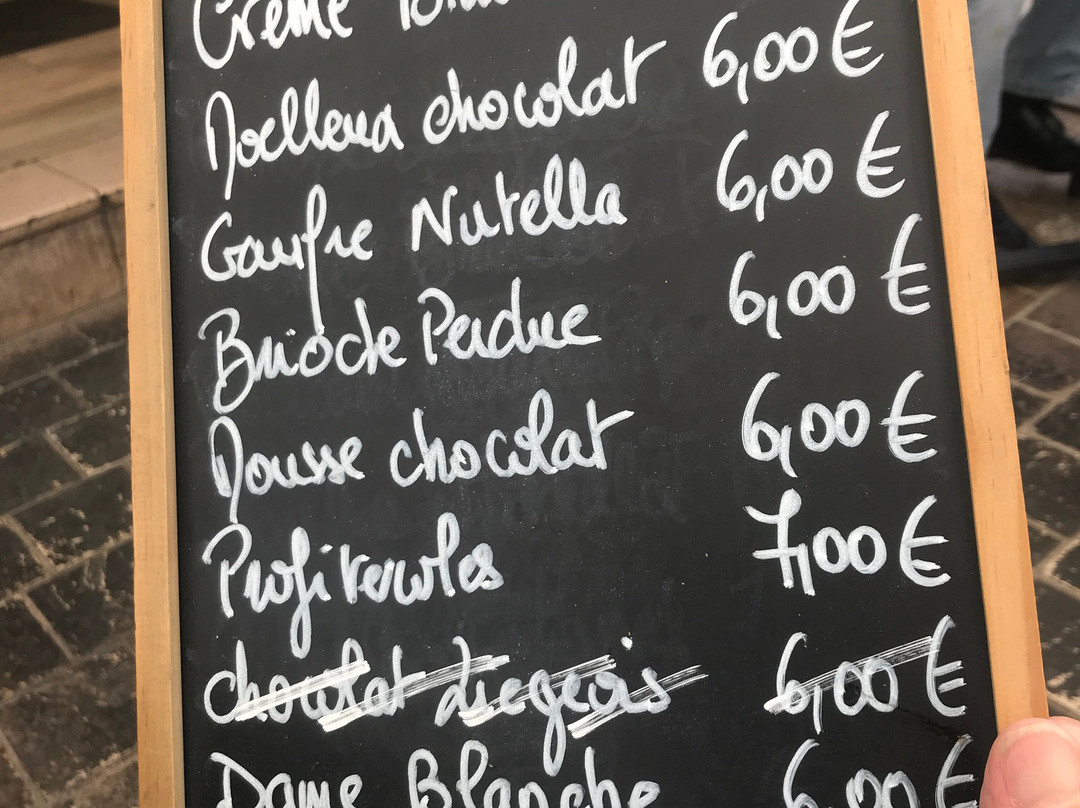 Crème
Moelleux chocolat 6,00 €
Gaufre Nutella 6,00 €
Brioche Perdue 6,00 €
Mousse chocolat 6,00 €
Profiteroles 7,00 €
chocolat Liegeois 6,00 €
Dame Blanche 6,00 €